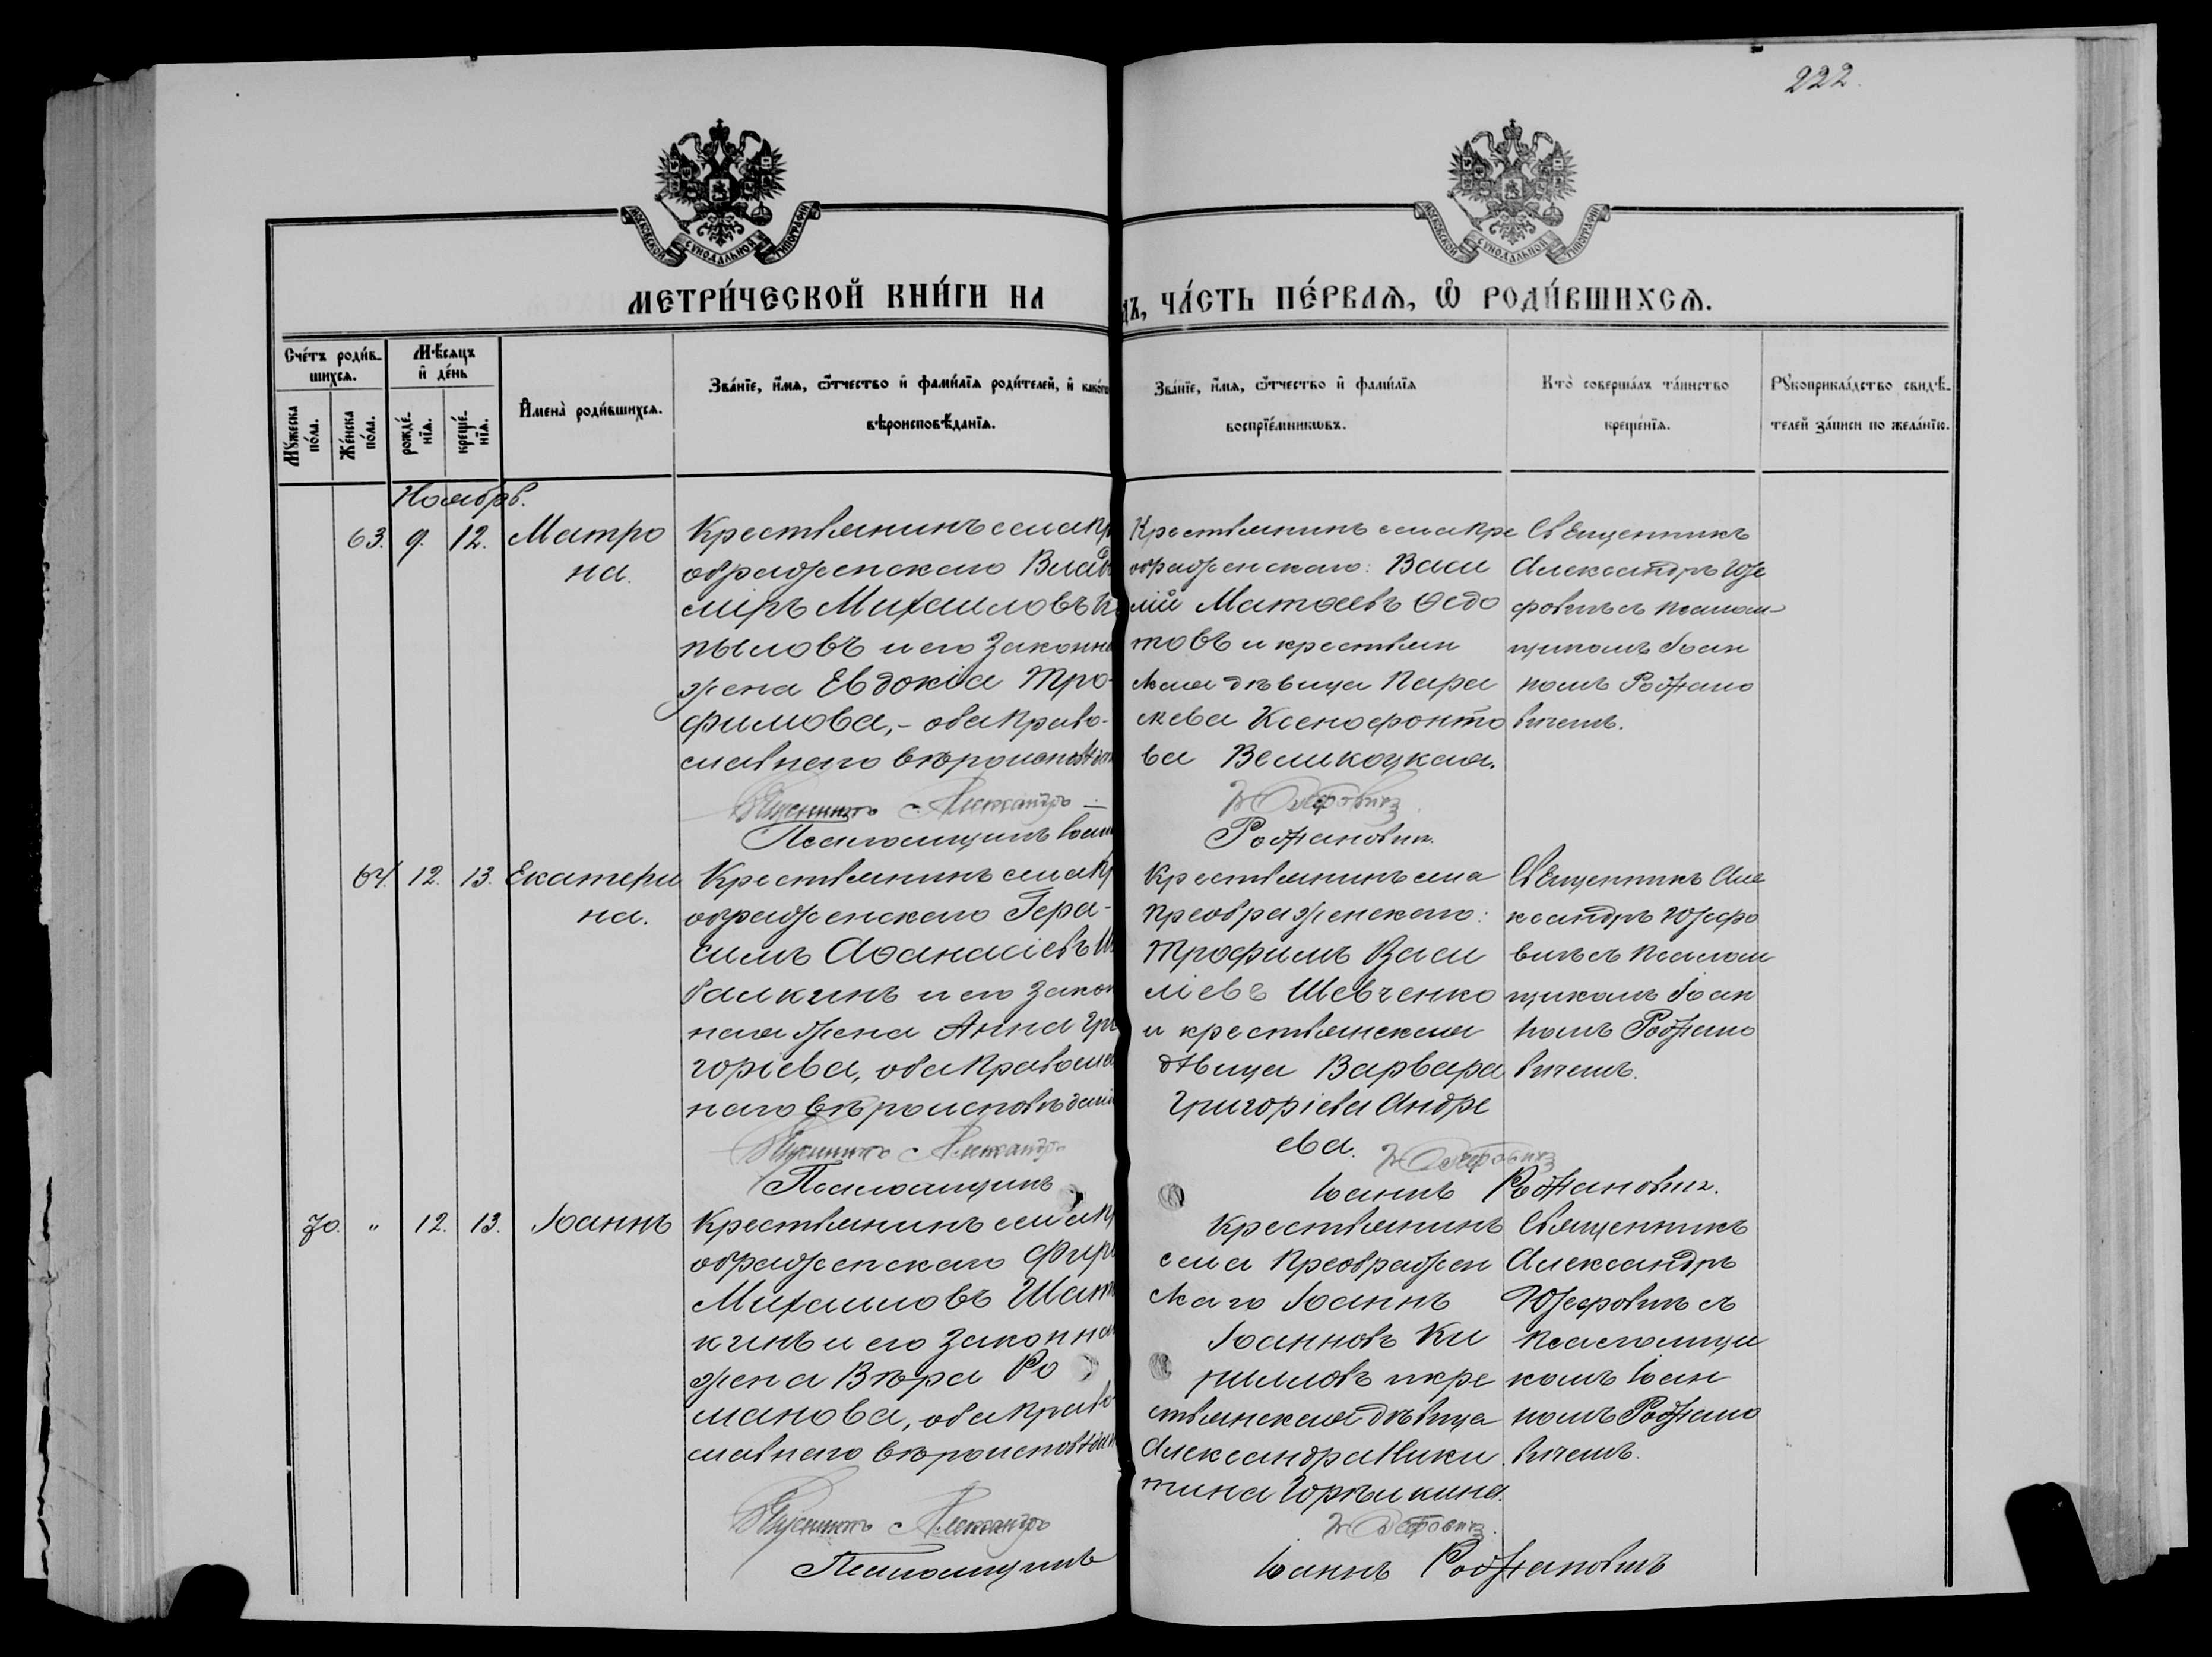 222.
МОСКОВСКОЙ СУНОДАЛЬНОЙ ТИПОГРАФІИ
МОСКОВСКОЙ СУНОДАЛЬНОЙ ТИПОГРАФІИ
МЕТРИ́ЧЕСКОЙ КНИ́ГИ НА
ДЪ, ЧА́СТЬ ПЕ́РВАѦ, Ѽ РОДИ́ВШИХСѦ.
Счéтъ роди́в-
шихсѧ.
Мꙋ́жеска
по́ла.
Же́нска
по́ла.
Мѣ́сѧцъ
и҆ де́нь
рожде́-
нїѧ.
креще́-
нїѧ.
И҆мена̀ роди́вшихсѧ.
Зва́нїе, и҆́мѧ, ѻ҆́тчество и҆ фами́лїѧ роди́телей, и҆ како́гѡ
вѣроисповѣ́данїѧ.
Зва́нїе, и҆́мѧ, ѻ҆́тчество и҆ фами́лїѧ
воспрїе́мникѡвъ.
Кто̀ соверша́лъ та́инство
креще́нїѧ.
Рꙋкоприкла́дство свидѣ́-
телей за́писи по жела́нїю.
Ноябрь.
63. 9. 12. Матро
на.
Крестьянинъ села Пр
ображенскаго Влад
міръ Михаиловъ К
пыловъ и его законна
жена Евдокія Тро-
фимова,- оба Право-
славнаго вѣроисповѣдан
Священникъ Александръ
Псаломщикъ Іоан
Крестьянинъ села Пре
ображенскаго: Васи
лій Матѳеевъ Ѳедо
товъ и крестьян
ская дѣвица Пара
скева Ксенофонто
ва Великоцкая.
Юзефовичъ
Рожановичъ.
Священникъ
Александръ Юзе
фовичъ съ псалом
щикомъ Іоан
номъ Рожано
вичемъ.
64. 12. 13. Екатери
на.
Крестьянинъ села Пр
ображенскаго Гера-
симъ Аѳанасіевъ Ш
балкинъ и его закон
ная жена Анна Гри
горіева, оба Правосла
наго вѣроисповѣдані
Священникъ Александръ
Псаломщикъ
Крестьянинъ села
Преображенскаго:
Трофимъ Васи
ліевъ Шевченко
и крестьянская
дѣвица Варвара
Григоріева Андре
ева.
Юзефовичъ
Іоаннъ Рожановичъ.
Священникъ Але
ксандръ Юзефо
вичъ съ псалом
щикомъ Іоан
номъ Рожано
вичемъ.
70. " 12. 13. Іоаннъ
Крестьянинъ села Пр
ображенскаго Фирс
Михаиловъ Шат
кинъ и его законна
жена Вѣра Ро
манова, оба Право
славнаго вѣроисповѣдан
Священникъ Александръ
Псаломщикъ
Крестьянинъ
села Преображен
скаго Іоаннъ
Іоанновъ Ки
рилловъ и кре
стьянская дѣвица
Александра Ники
тина Горѣлкина.
Юзефовичъ.
Іоаннъ Рожановичъ
Священникъ
Александръ
Юзефовичъ съ
псаломщи
комъ Іоан
номъ Рожано
вичемъ.